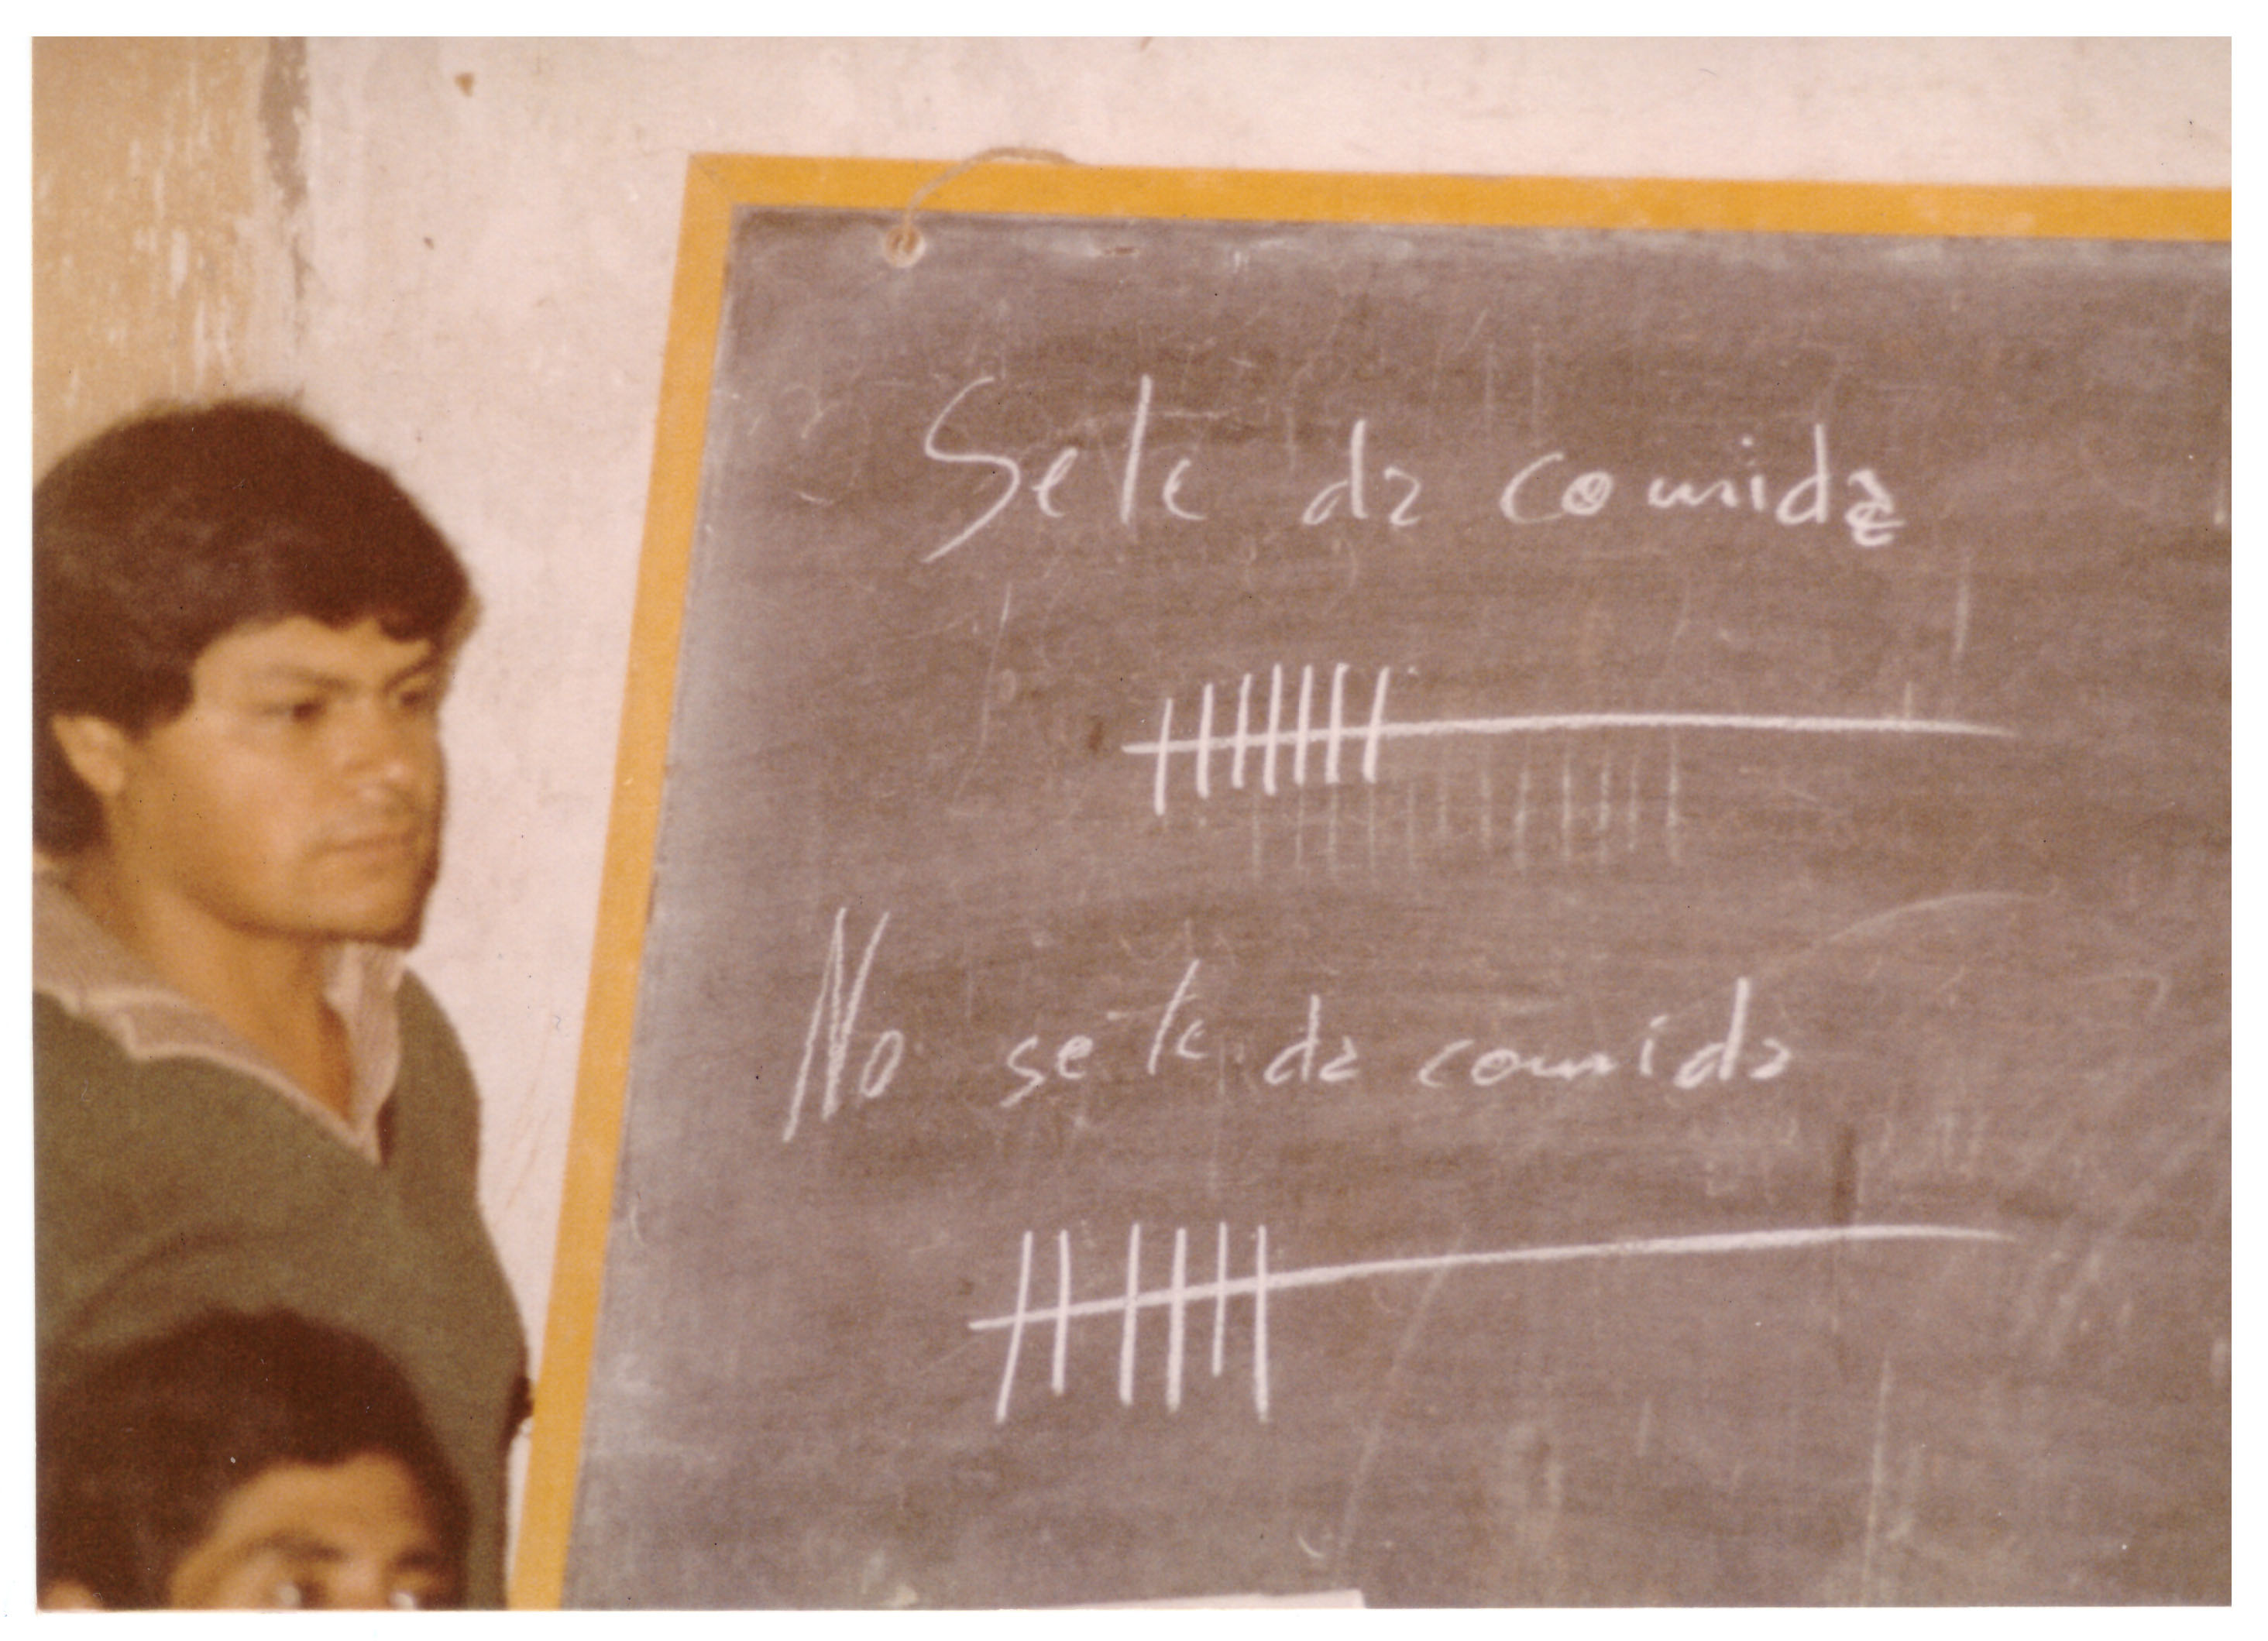 Se le da comida
No se le da comida